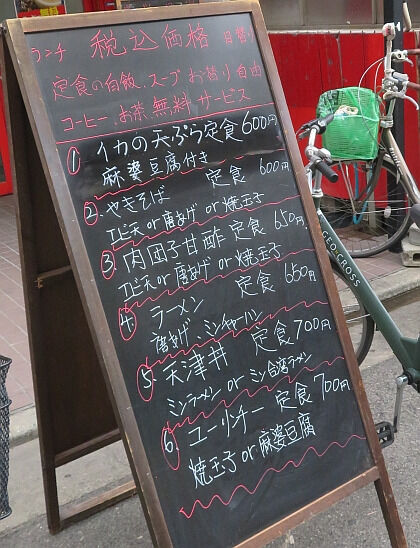 ランチ 税込価格 日替り
定食の白飯、スープお替り自由
コーヒー、お茶、無料、サービス
① イカの天ぷら定食 600円
麻婆豆腐付き
② やきそば 定食 600円
エビ天 or 唐あげ or 焼玉子
③ 肉団子甘酢 定食 650円
エビ天 or 唐あげ or 焼玉子
④ ラーメン 定食 650円
唐あげ、ミンチャーハン
⑤ 天津丼 定食 700円
ミンラーメン or ミン台湾ラーメン
⑥ ユーリンチー 定食 700円
焼玉子 or 麻婆豆腐
GEO CROSS